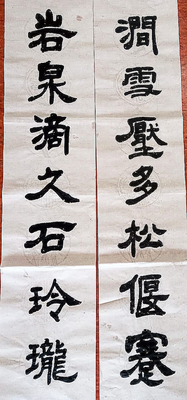 澗雪壓多松偃蹇
岩泉滴久石玲瓏